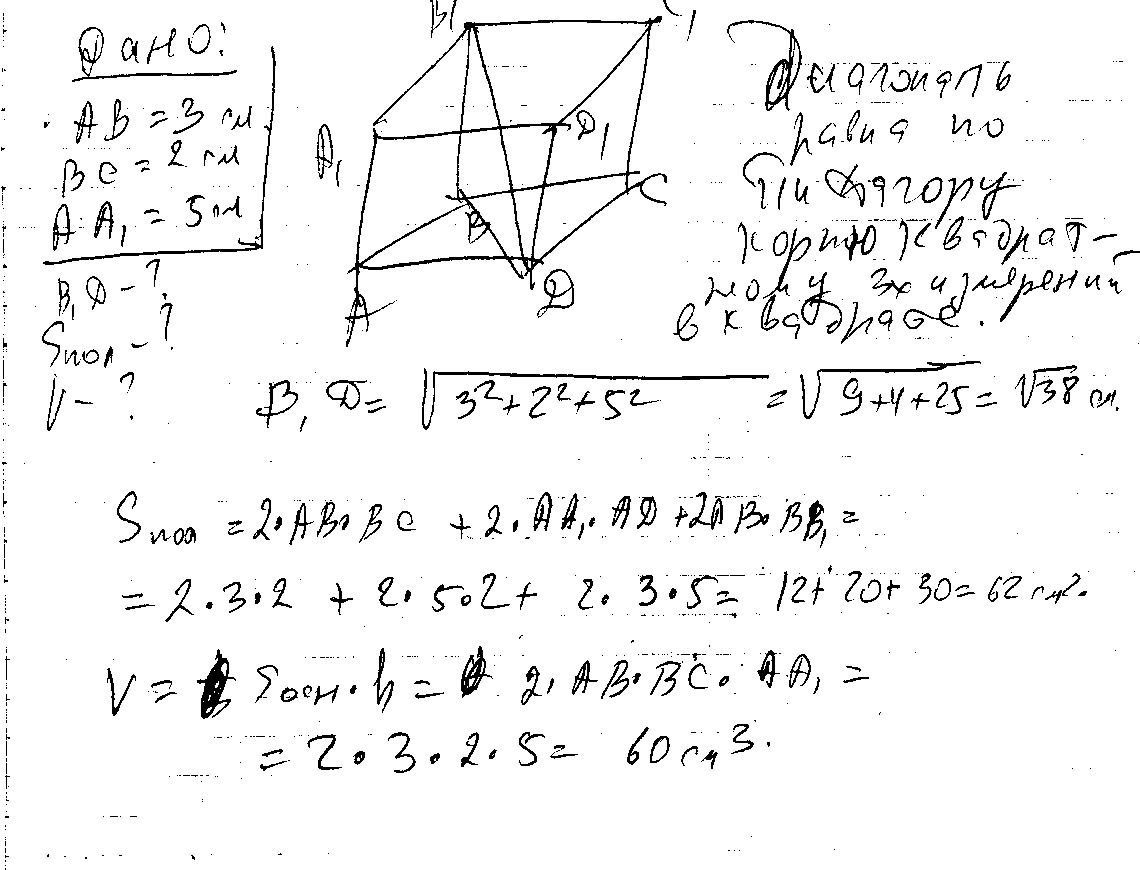 Дано:
AB = 3 см
BC = 2 см
AA₁ = 5 см
B₁D - ?
Sпол - ?
V - ?
B₁
C₁
A₁
D₁
B
C
A
D
Диагональ
равна по
Пифагору
корню квадрат-
ному 3х измерений
в квадрате.
B₁D = √(3²+2²+5²) = √(9+4+25) = √38 см.
Sпол = 2·AB·BC + 2·AA₁·AD + 2AB·BB₁ =
= 2·3·2 + 2·5·2 + 2·3·5 = 12+20+30 = 62 см².
V = Sосн·h = 2·AB·BC·AA₁ =
= 2·3·2·5 = 60 см³.